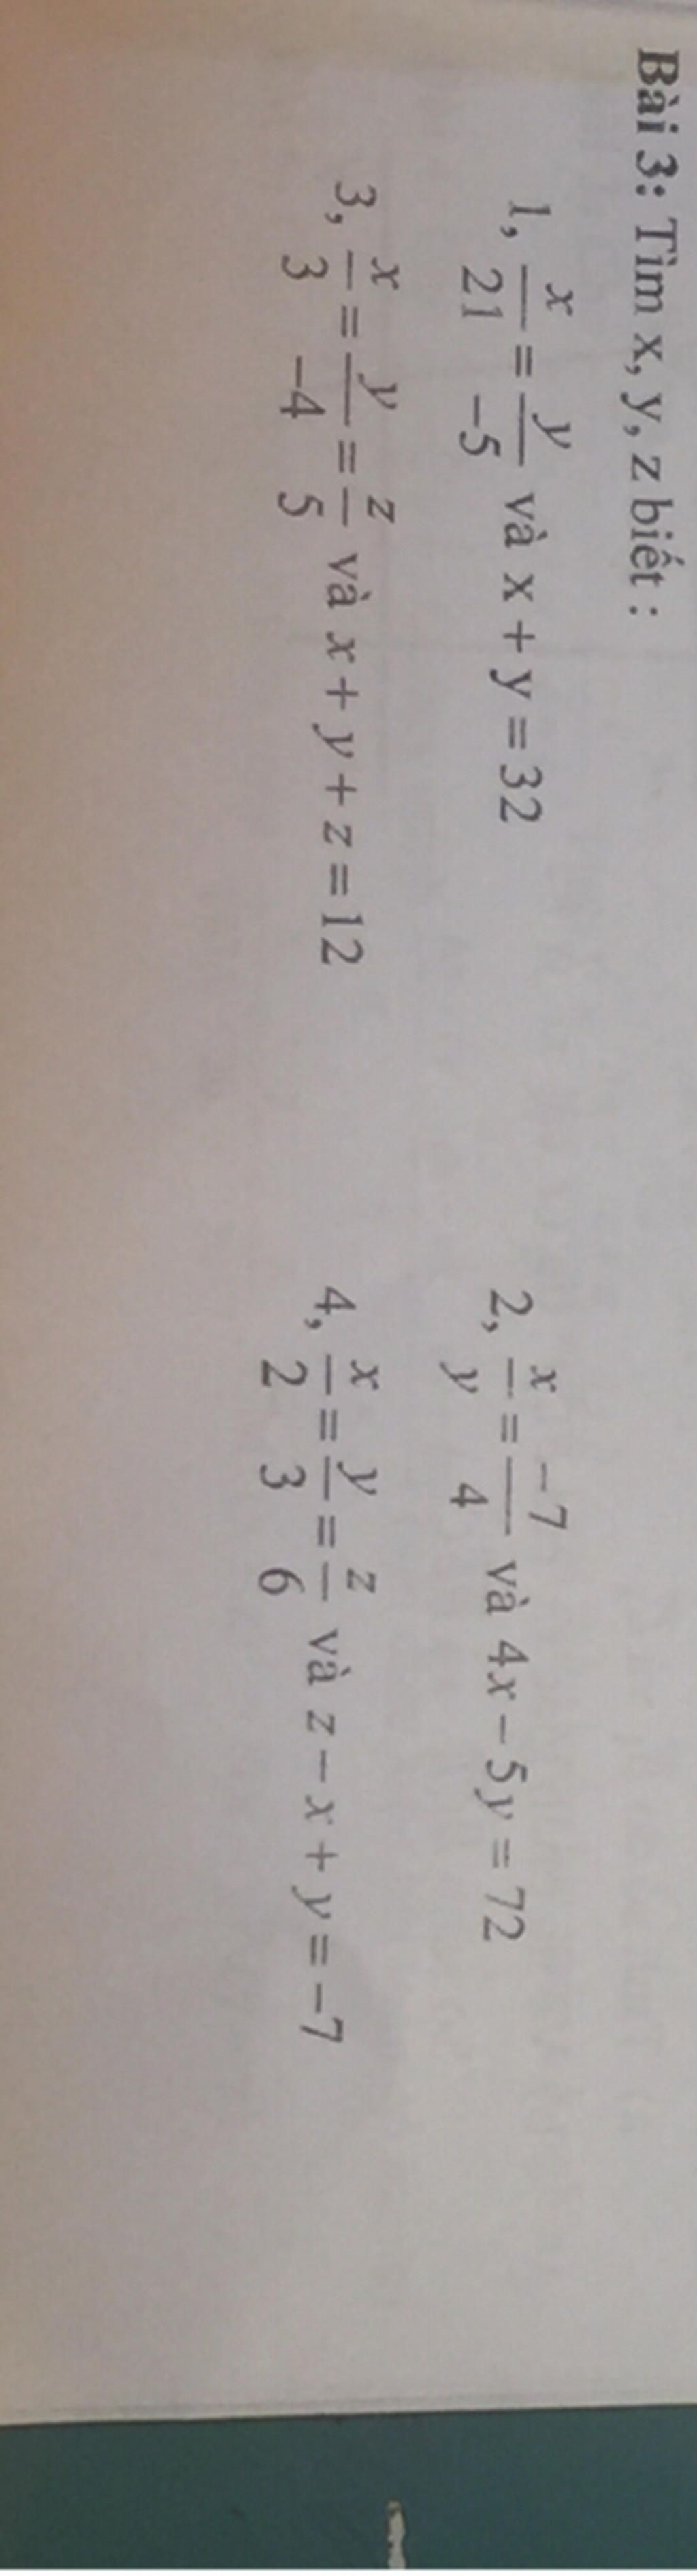 Bài 3: Tìm x, y, z biết :
1, x/21 = y/-5 và x + y = 32
2, x/y = -7/4 và 4x - 5y = 72
3, x/3 = y/-4 = z/5 và x + y + z = 12
4, x/2 = y/3 = z/6 và z - x + y = -7